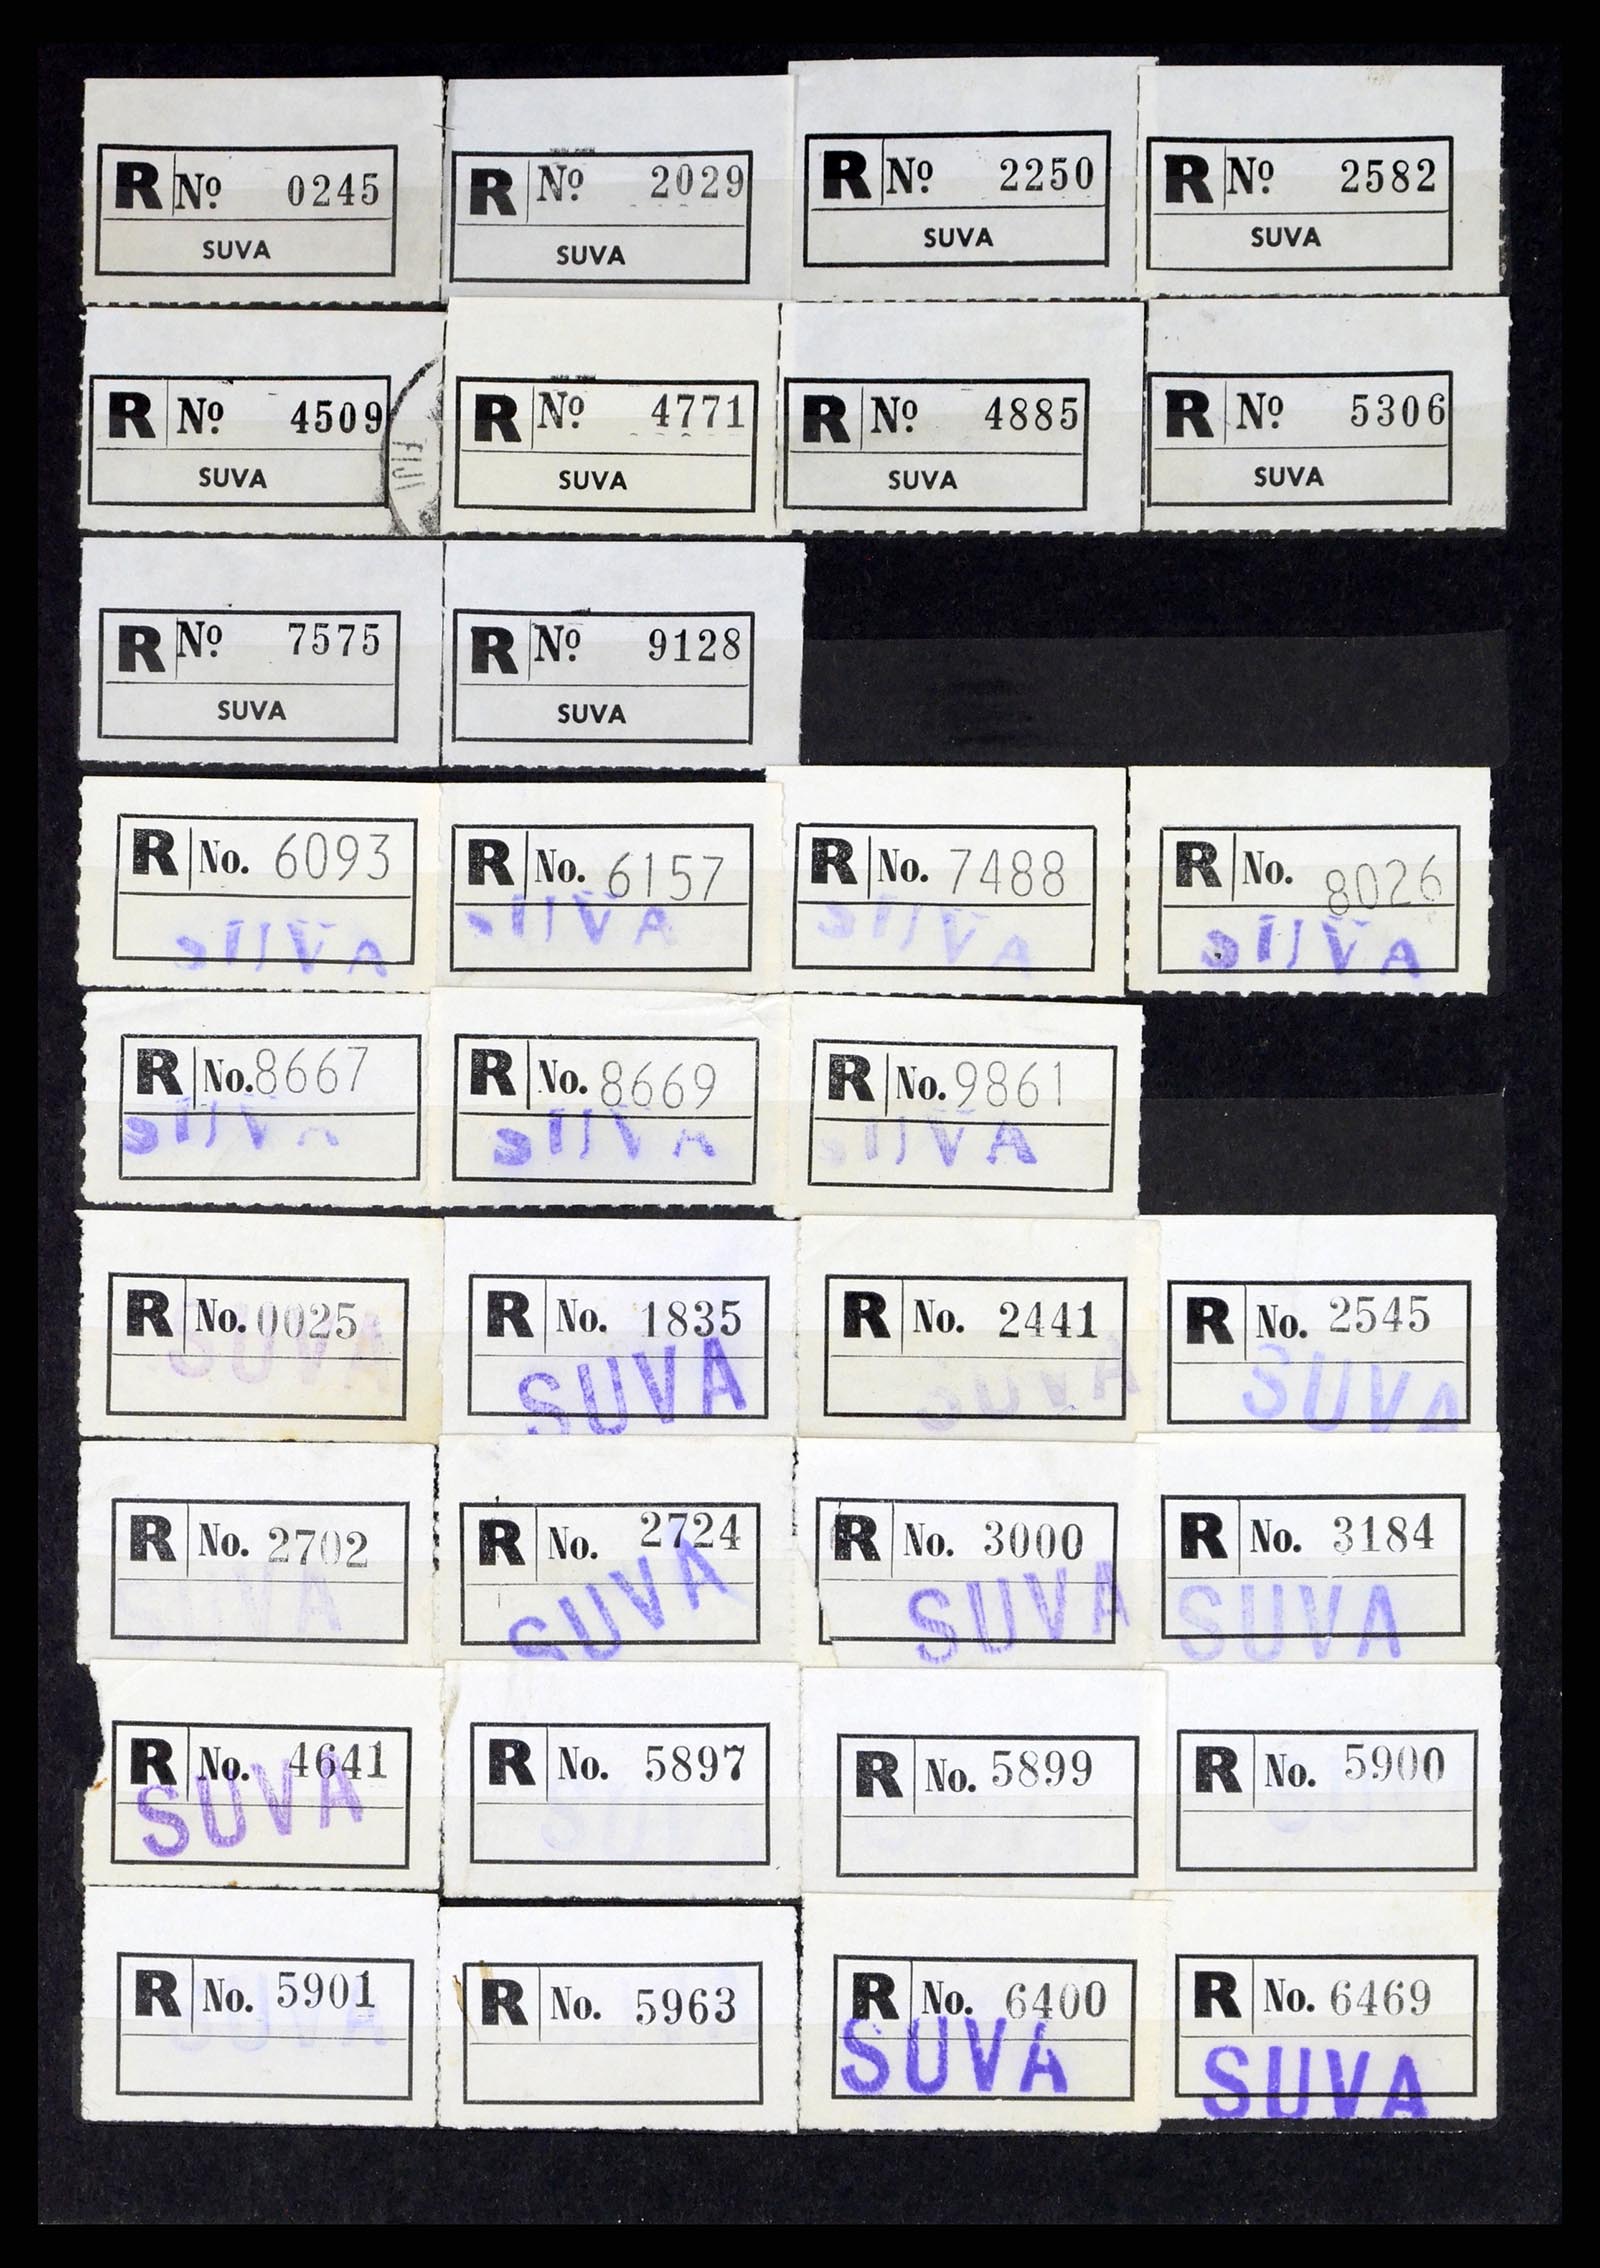 R Nº 0245
SUVA
R Nº 2029
SUVA
R Nº 2250
SUVA
R Nº 2582
SUVA
R Nº 4509
SUVA
FIJI
R Nº 4771
SUVA
R Nº 4885
SUVA
R Nº 5306
SUVA
R Nº 7575
SUVA
R Nº 9128
SUVA
R No. 6093
SUVA
R No. 6157
SUVA
R No. 7488
SUVA
R No. 8026
SUVA
R No. 8667
SUVA
R No. 8669
SUVA
R No. 9861
SUVA
R No. 0025
SUVA
R No. 1835
SUVA
R No. 2441
SUVA
R No. 2545
SUVA
R No. 2702
SUVA
R No. 2724
SUVA
R No. 3000
SUVA
R No. 3184
SUVA
R No. 4641
SUVA
R No. 5897
SUVA
R No. 5899
R No. 5900
SUVA
R No. 5901
SUVA
R No. 5963
R No. 6400
SUVA
R No. 6469
SUVA